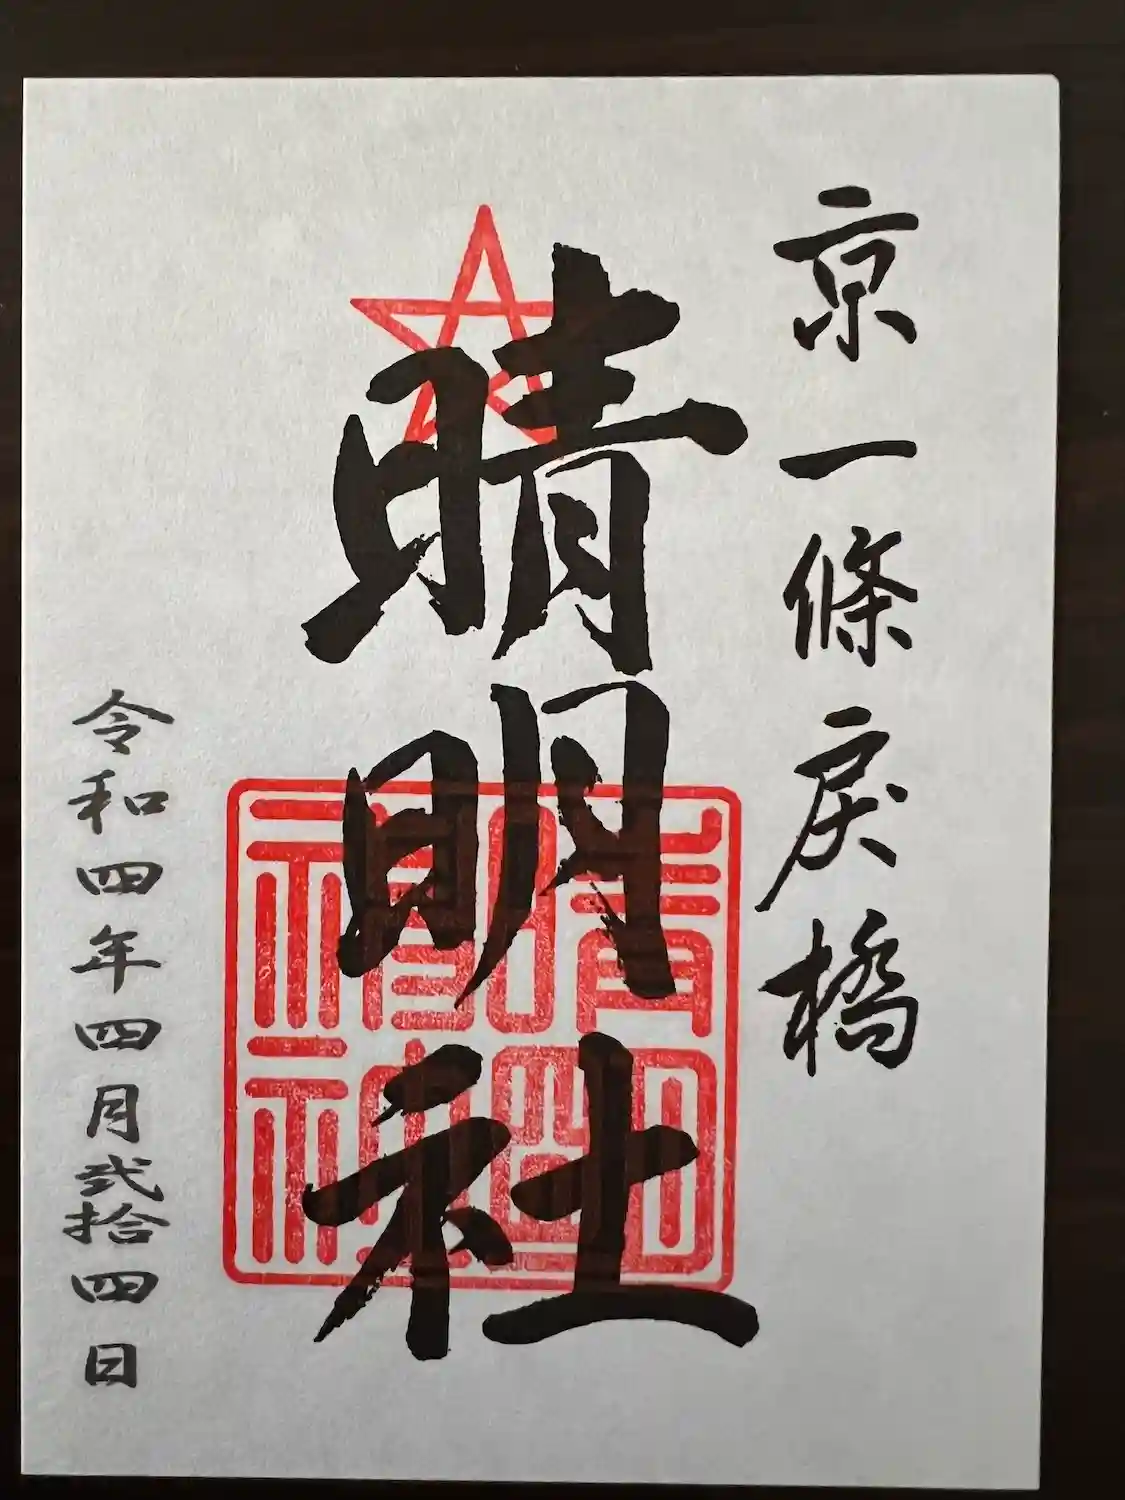 京一條戻橋
晴明社
令和四年四月弐拾四日